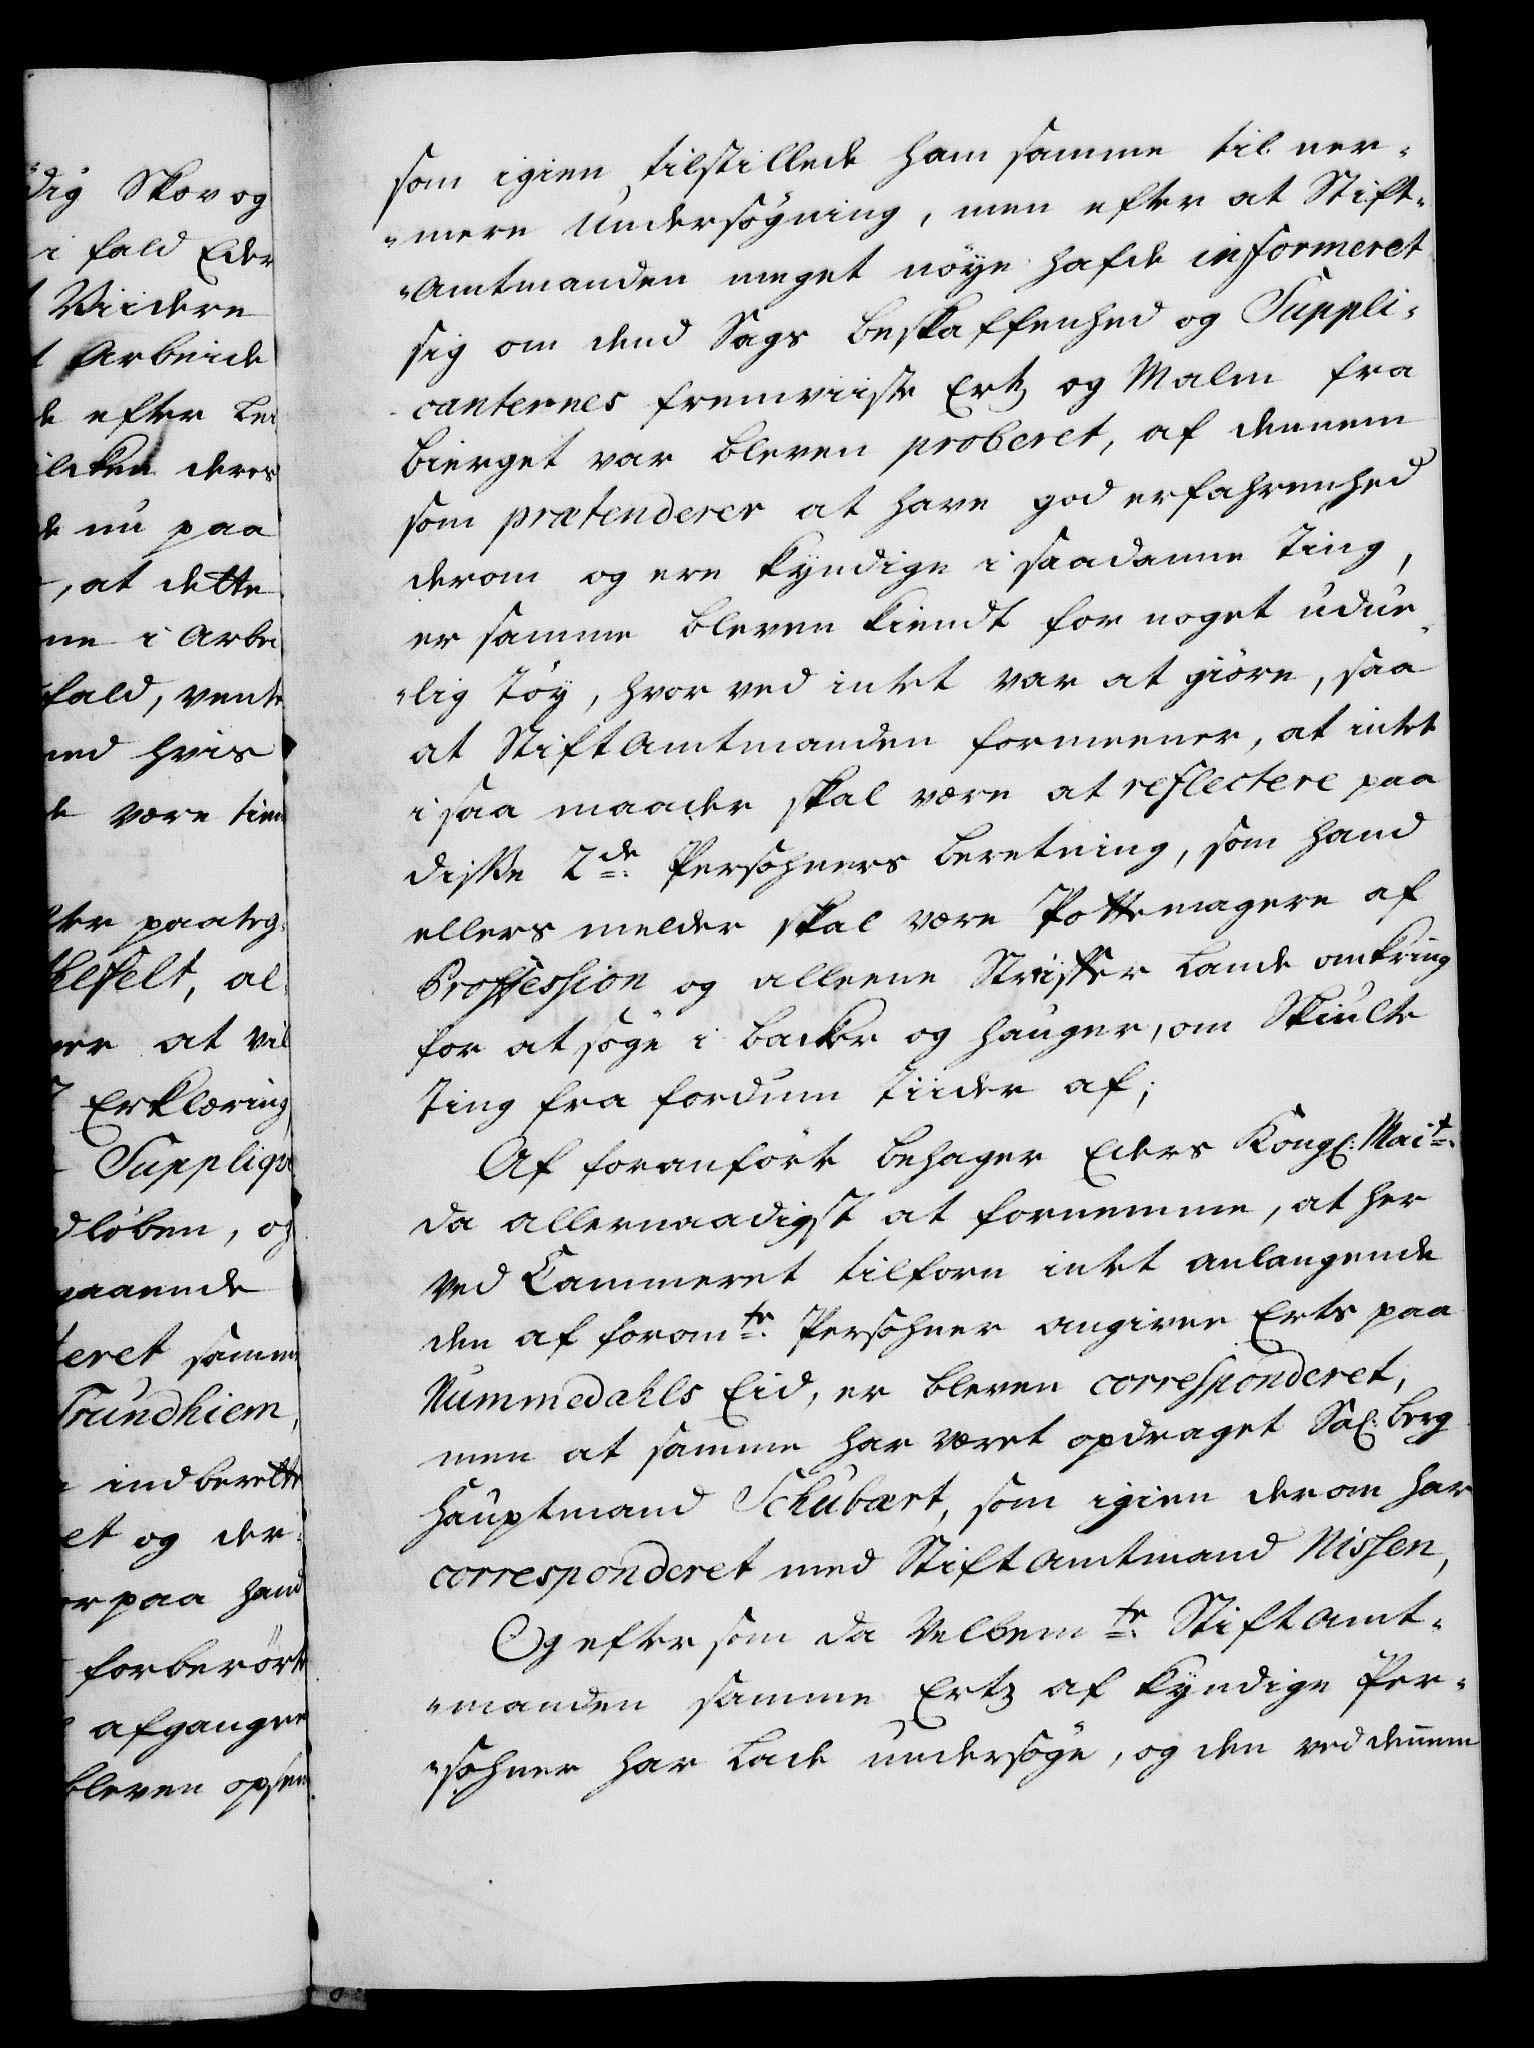 dig Skov og
i fald Eder
Viidere
Arbeide
de efter
deres
de nu paa
, at dette
ne i Arbei
fald, vente
med hvis
de være tien
ter paateg,
felt, al,
ner at vil
Erklæring
Supplique
dløben, og
gaaende
teret samme
Trundhiem,
indberette
et og der,
er paa hand
forberørte
afgangne
bleven opsen
som igien tilstillede ham samme til ner,
„mere Undersøgning, men efter at Stift,
„Amtmanden meget nöye hafde informeret
sig om dend Sags beskaffenhed og Suppli,
canternes fremviiste Ertz og Malm fra
bierget var bleven proberet, af dennem
som prætenderer at have god erfahrenhed
derom og ere kyndige i saadanne Ting,
er samme bleven kiendt for noget udue,
„lig töy, hvor ved intet var at giöre, saa
at StiftAmtmanden formeener, at intet
i saa maader skal være at reflectere paa
disse 2de Persohners beretning, som hand
ellers melder skal være Pottemagere af
Proffession og alleene Striffer Lande omkring
for at söge i backer og hauger, om Skiulte
Ting fra fordum tiider af;
Af foranförte behager Eders Kongl: Mait:
da allernaadigst at fornemme, at her
ved Cammeret tilforn intet anlangende
den af foromte: Persohner angivne Erts paa
Nummedahls Eid, er bleven corresponderet,
men at samme har været opdraget Sal: berg
hauptmand Schubart, som igien derom har
corresponderet med StiftAmtmand Nissen,
Og eftersom da Velbemte: StiftAmt,
„manden samme Ertz af kyndige Per,
„sohner har lade undersöge, og den ved dennem